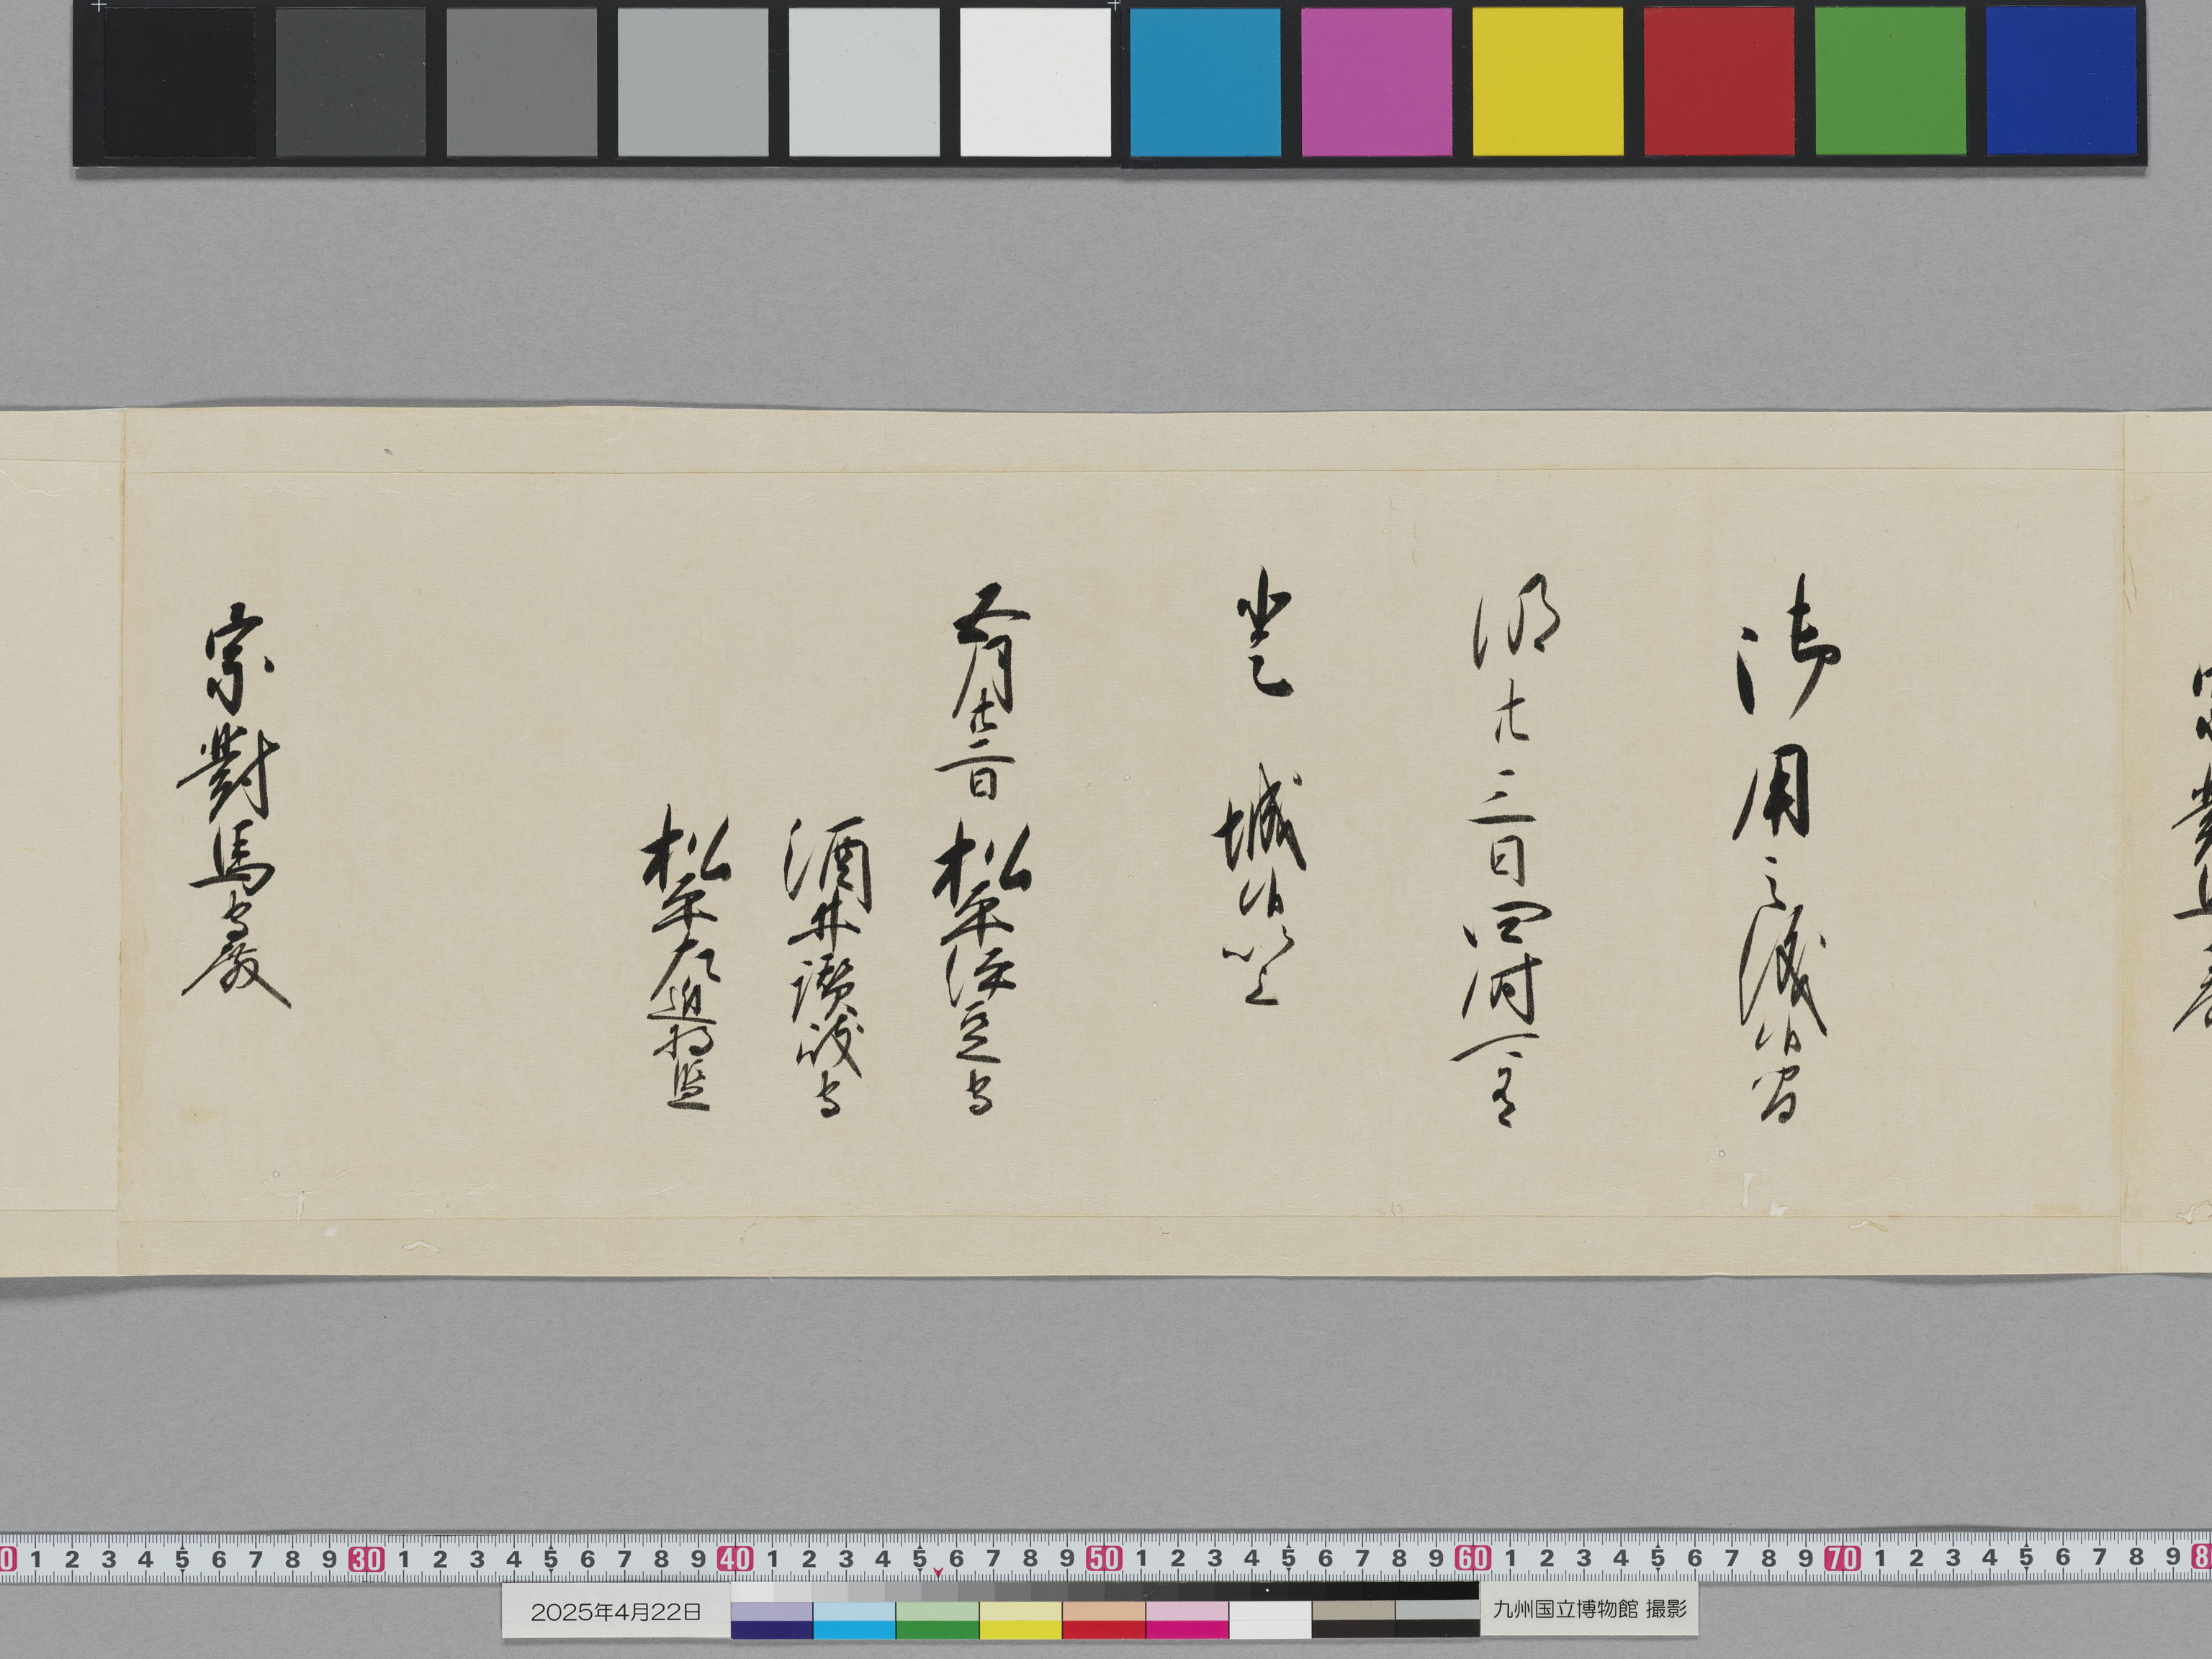 御用之儀候間
明廿三日四時可有
登 城候以上
五月廿二日 松平伊豆守
酒井讃岐守
松平左近将監
宗對馬守殿
0 1 2 3 4 5 6 7 8 9 30 1 2 3 4 5 6 7 8 9 40 1 2 3 4 5 6 7 8 9 50 1 2 3 4 5 6 7 8 9 60 1 2 3 4 5 6 7 8 9 70 1 2 3 4 5 6 7 8 9 8
2025年4月22日
九州国立博物館 撮影